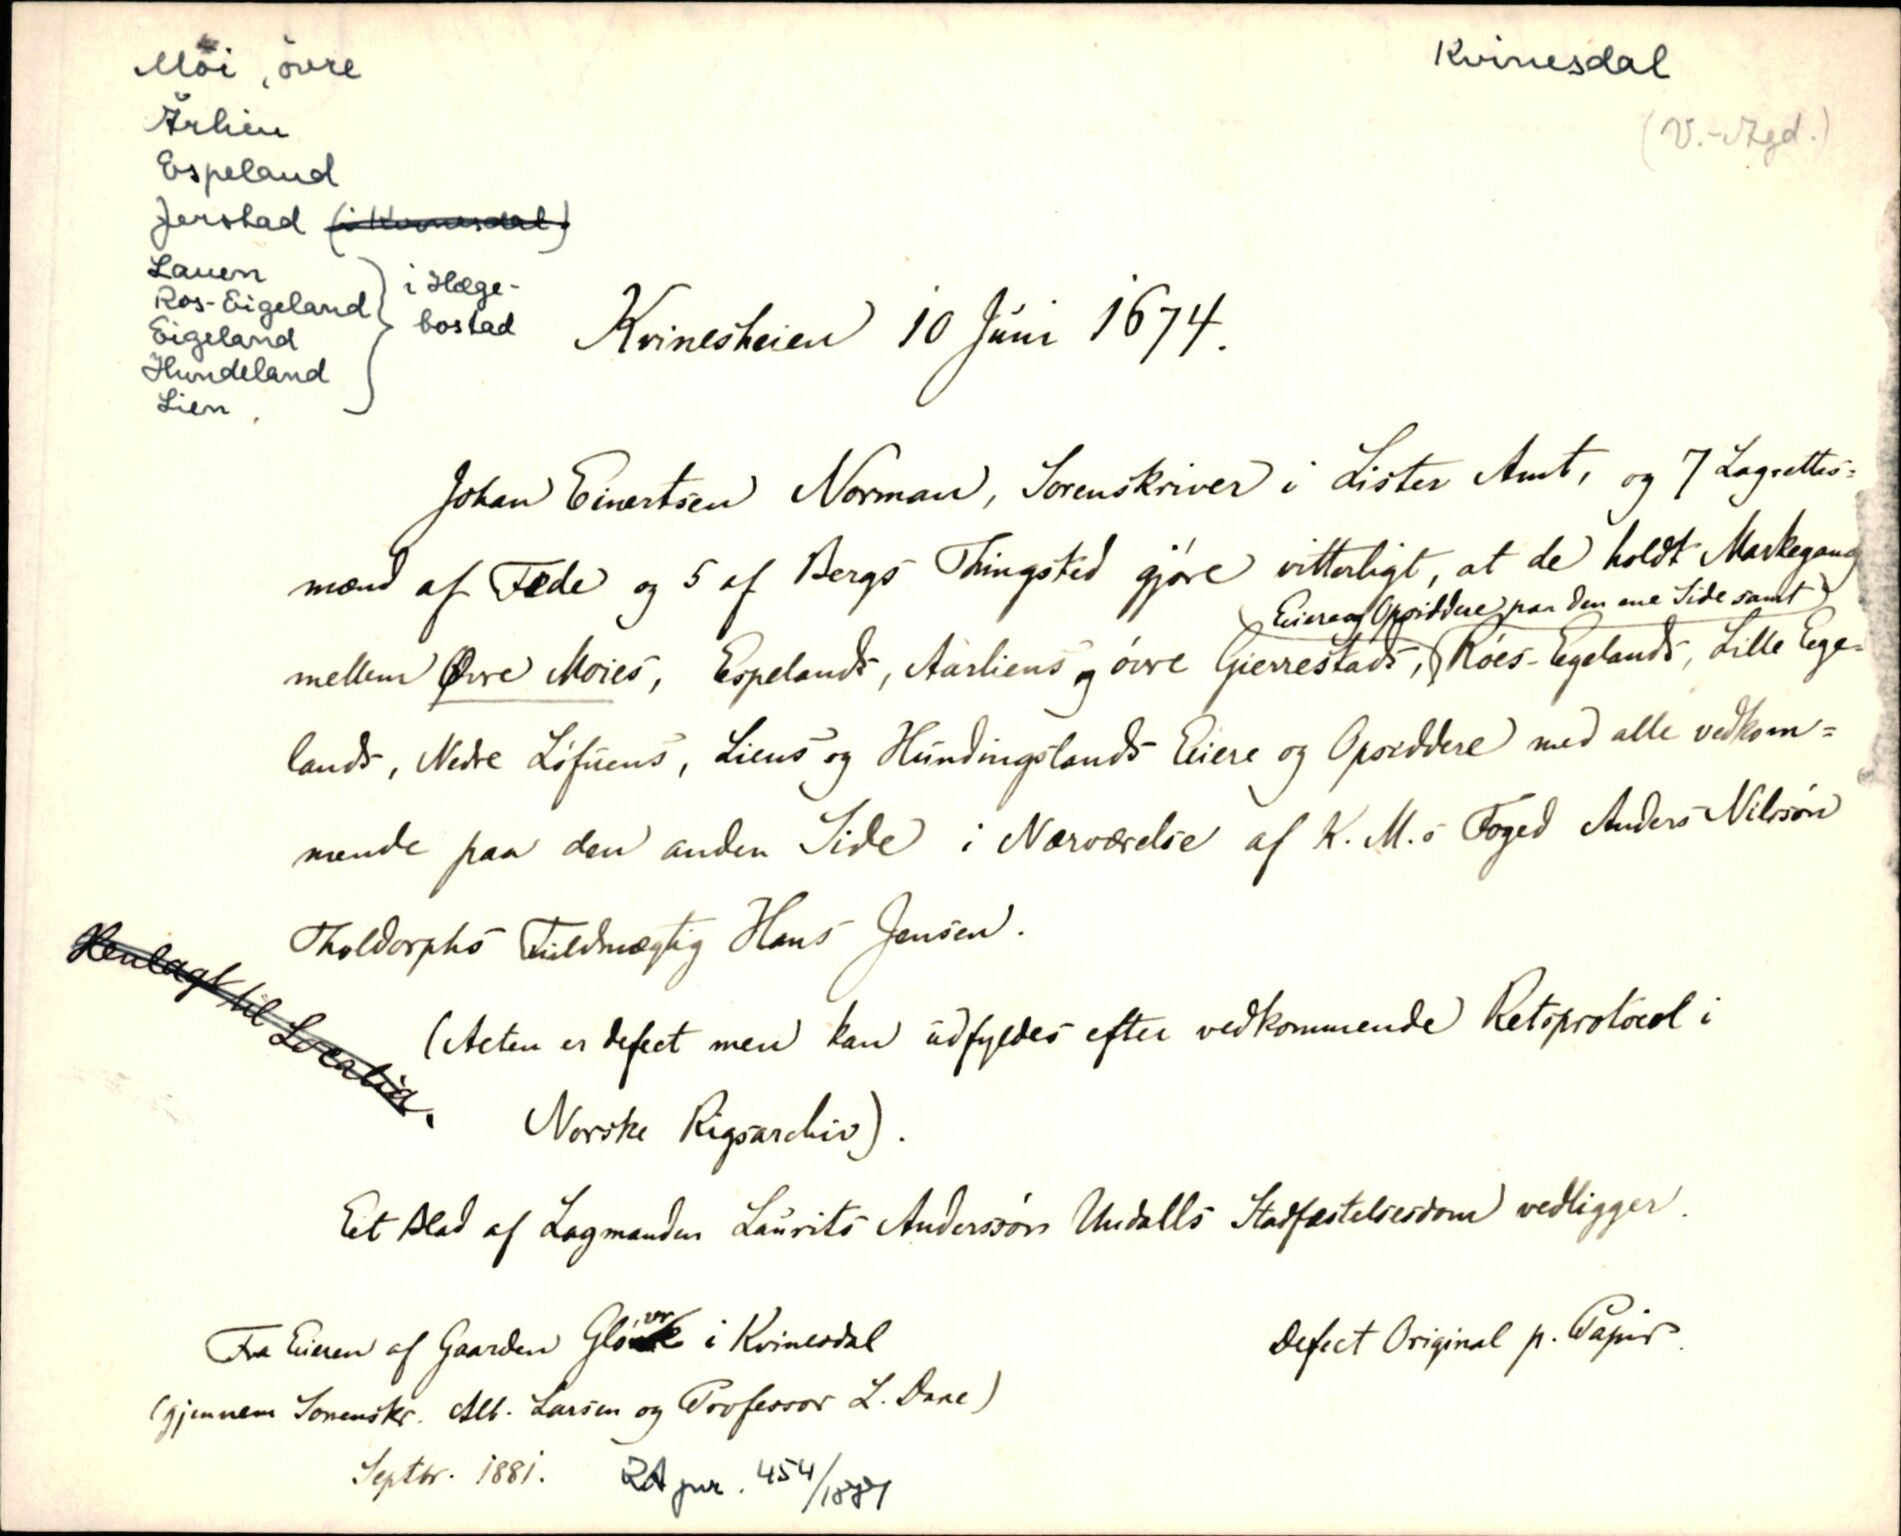 Möi, övre
Kvinesdal
(V.-Agd.)
Ärlien
Espeland
Jerstad (i Kvinesdal)
Lauen
Ros-Eigeland
Eigeland
Hundeland
Lien
i Hæge-
bostad
Kvinesheien 10 Juni 1674.
Johan Einertsen Norman, Sorenskriver i Lister Amt, og 7 Lagrettes=
mænd af Fede og 5 af Bergs Thingsted gjöre vitterligt, at de holdt Markegang
Eiere og Opsiddere paa den ene Side samt
mellem Øvre Moies, Espelands, Aarliens og övre Gierrestads, Róes-Egelands, Lille Ege=
lands, Nedre Löfuens, Liens og Hundingslands Eiere og Opsiddere med alle vedkom=
mende paa den anden Side i Nærværelse af K. M.s Foged Anders Nilssön
Tholdorphs Fuldmægtig Hans Jensen.
Henlagt til Localia.
(Acten er defect men kan udfyldes efter vedkommende Retsprotocol i
Norske Rigsarchiv).
Eet Blad af Lagmanden Laurits Anderssön Undalls Stadfæstelsesdom vedligger.
Fra Eieren af Gaarden Glövre i Kvinesdal
Defect Original p. Papir.
(gjennem Sorenskr. Alb. Larsen og Professor L. Daae)
Septbr. 1881.
RA jnr. 454/1881